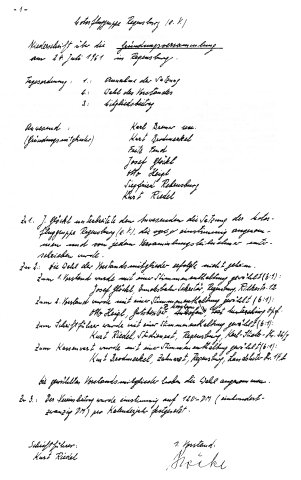 - 1 -
Motorfluggruppe Regensburg (e.V.)
Niederschrift über die Gründungsversammlung
am 27. Juli 1961 in Regensburg.
Tagesordnung: 1. Annahme der Satzung
2. Wahl des Vorstandes
3. Mitgliedsbeitrag
Anwesend: Karl Bremer sen.
(Gründungsmitglieder) Kurt Brodmerkel
Fritz Fend
Josef Glöckl
Otto Heigl
Siegfried
Kurt Riedel
Zu 1. J. Glöckl unterbreitete den Anwesenden die Satzung der Motor-
fluggruppe Regensburg (e.V.), die einstimmig angenom-
men und von jedem Versammlungsteilnehmer unter-
schrieben wurde.
Zu 2: Die Wahl der Vorstandsmitglieder erfolgte nicht geheim.
Zum 1. Vorstand wurde mit einer Stimmenenthaltung gewählt (6:1):
Josef Glöckl, Regensburg,
Zum 2. Vorstand wurde mit einer Stimmenenthaltung gewählt (6:1):
Otto Heigl,
Zum Schriftführer wurde mit einer Stimmenenthaltung gewählt (6:1):
Kurt Riedel, Regensburg,
Zum Kassenwart wurde mit einer Stimmenenthaltung gewählt (6:1):
Kurt Brodmerkel, Zahnarzt, Regensburg,
Die gewählten Vorstandsmitglieder haben die Wahl angenommen.
Zu 3: Der Vereinsbeitrag wurde einstimmig auf 120.- DM (einhundert-
zwanzig DM) pro Kalenderjahr festgesetzt.
Schriftführer: 1. Vorstand.
Kurt Riedel